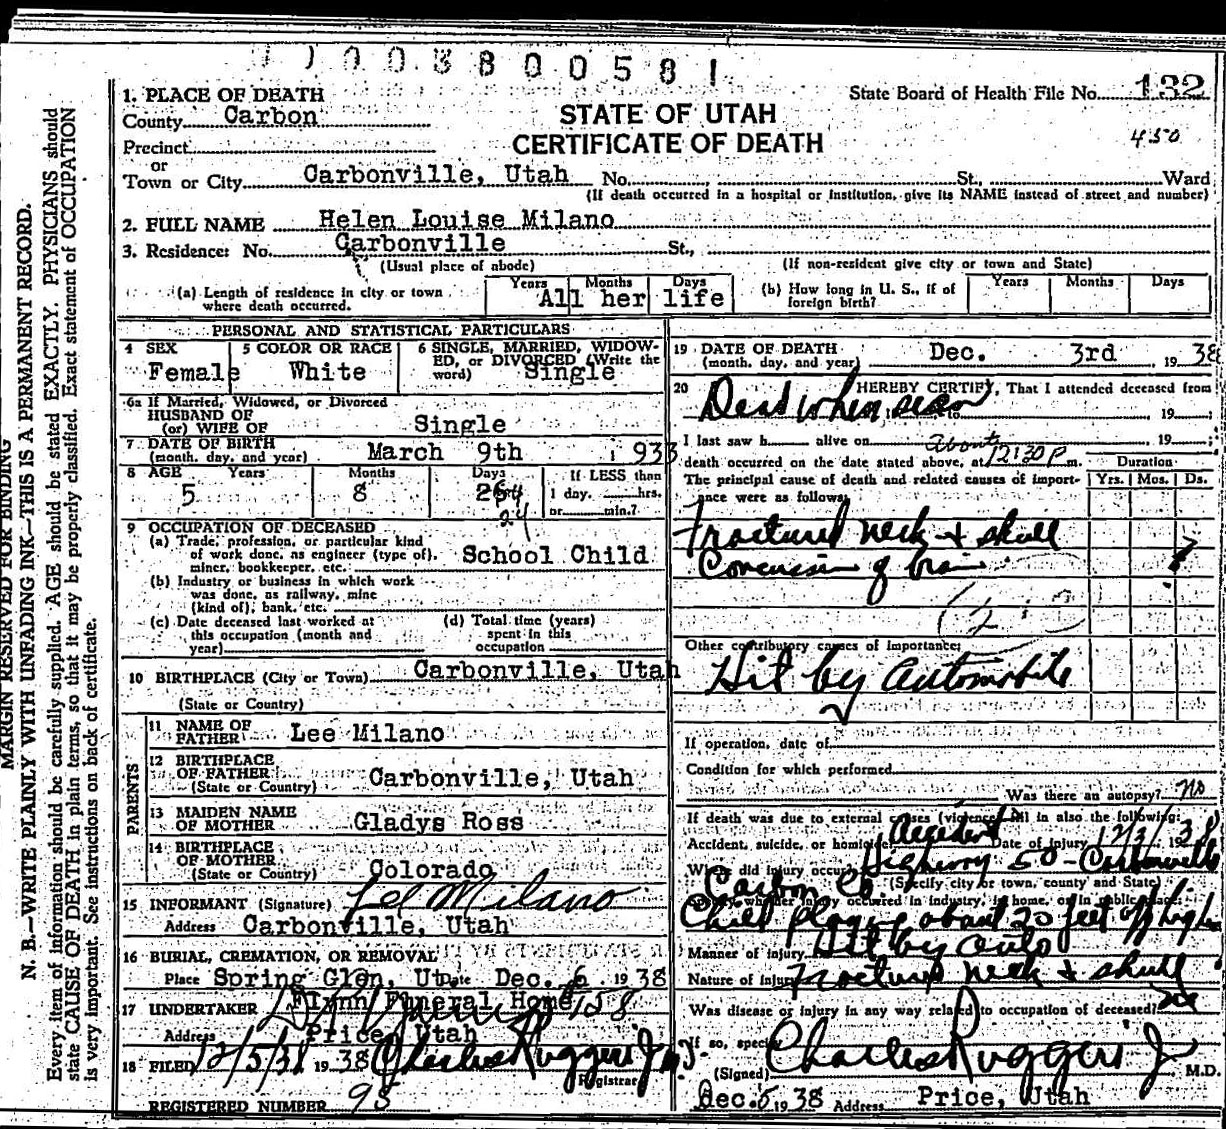 0 0 3 8 0 0 5 8 1
State Board of Health File No. 132
1. PLACE OF DEATH
County Carbon
STATE OF UTAH
450
Precinct
CERTIFICATE OF DEATH
or
Town or City Carbonville, Utah No. St., Ward
(If death occurred in a hospital or institution, give its NAME instead of street and number)
2. FULL NAME Helen Louise Milano
3. Residence: No. Carbonville St.,
(Usual place of abode) (If non-resident give city or town and State)
(a) Length of residence in city or town where death occurred. Years Months Days All her life
(b) How long in U. S., if of foreign birth? Years Months Days
PERSONAL AND STATISTICAL PARTICULARS
4 SEX Female
5 COLOR OR RACE White
6 SINGLE, MARRIED, WIDOWED, or DIVORCED (Write the word) Single
6a If Married, Widowed, or Divorced
HUSBAND OF
(or) WIFE OF Single
7 DATE OF BIRTH
(month, day, and year) March 9th 1933
8 AGE Years Months Days If LESS than
5 8 24 1 day, hrs.
or min.?
9 OCCUPATION OF DECEASED
(a) Trade, profession, or particular kind
of work done, as engineer (type of),
miner, bookkeeper, etc. School Child
(b) Industry or business in which work
was done, as railway, mine
(kind of), bank, etc.
(c) Date deceased last worked at
this occupation (month and
year)
(d) Total time (years)
spent in this
occupation
10 BIRTHPLACE (City or Town) Carbonville, Utah
(State or Country)
PARENTS
11 NAME OF
FATHER Lee Milano
12 BIRTHPLACE
OF FATHER
(State or Country) Carbonville, Utah
13 MAIDEN NAME
OF MOTHER Gladys Ross
14 BIRTHPLACE
OF MOTHER
(State or Country) Colorado
15 INFORMANT (Signature) Lee Milano
Address Carbonville, Utah
16 BURIAL, CREMATION, OR REMOVAL
Place Spring Glen, Ut Date Dec. 6 1938
17 UNDERTAKER Flynn Funeral Home 158
Address Price, Utah
18 FILED 12/5/38 1938 Charles Ruggeri Jr
Registrar
REGISTERED NUMBER 95
19 DATE OF DEATH
(month, day, and year) Dec. 3rd 1938
20 HEREBY CERTIFY, That I attended deceased from
Dead when seen to 19
I last saw h alive on 19
death occurred on the date stated above, at about 12:30 P m.
The principal cause of death and related causes of importance were as follows:
Duration
Yrs. Mos. Ds.
Fractured neck + skull
Concussion of brain
Other contributory causes of importance:
Hit by automobile
If operation, date of
Condition for which performed
Was there an autopsy? No
If death was due to external causes (violence) fill in also the following:
Accident, suicide, or homicide Accident Date of injury 12/3/1938
Where did injury occur Highway 50 - Carbonville
Carbon Co. (Specify city or town, county and State)
Specify whether injury occurred in industry, in home, or in public place:
Child playing about 20 feet off high
Manner of injury Hit by auto
Nature of injury Fracture neck & skull
Was disease or injury in any way related to occupation of deceased? No
If so, specify
(Signed) Charles Ruggeri Jr M.D.
Dec. 5 1938 Address Price, Utah
MARGIN RESERVED FOR BINDING
N. B.—WRITE PLAINLY WITH UNFADING INK—THIS IS A PERMANENT RECORD.
Every item of information should be carefully supplied. AGE should be stated EXACTLY. PHYSICIANS should
state CAUSE OF DEATH in plain terms, so that it may be properly classified. Exact statement of OCCUPATION
is very important. See instructions on back of certificate.